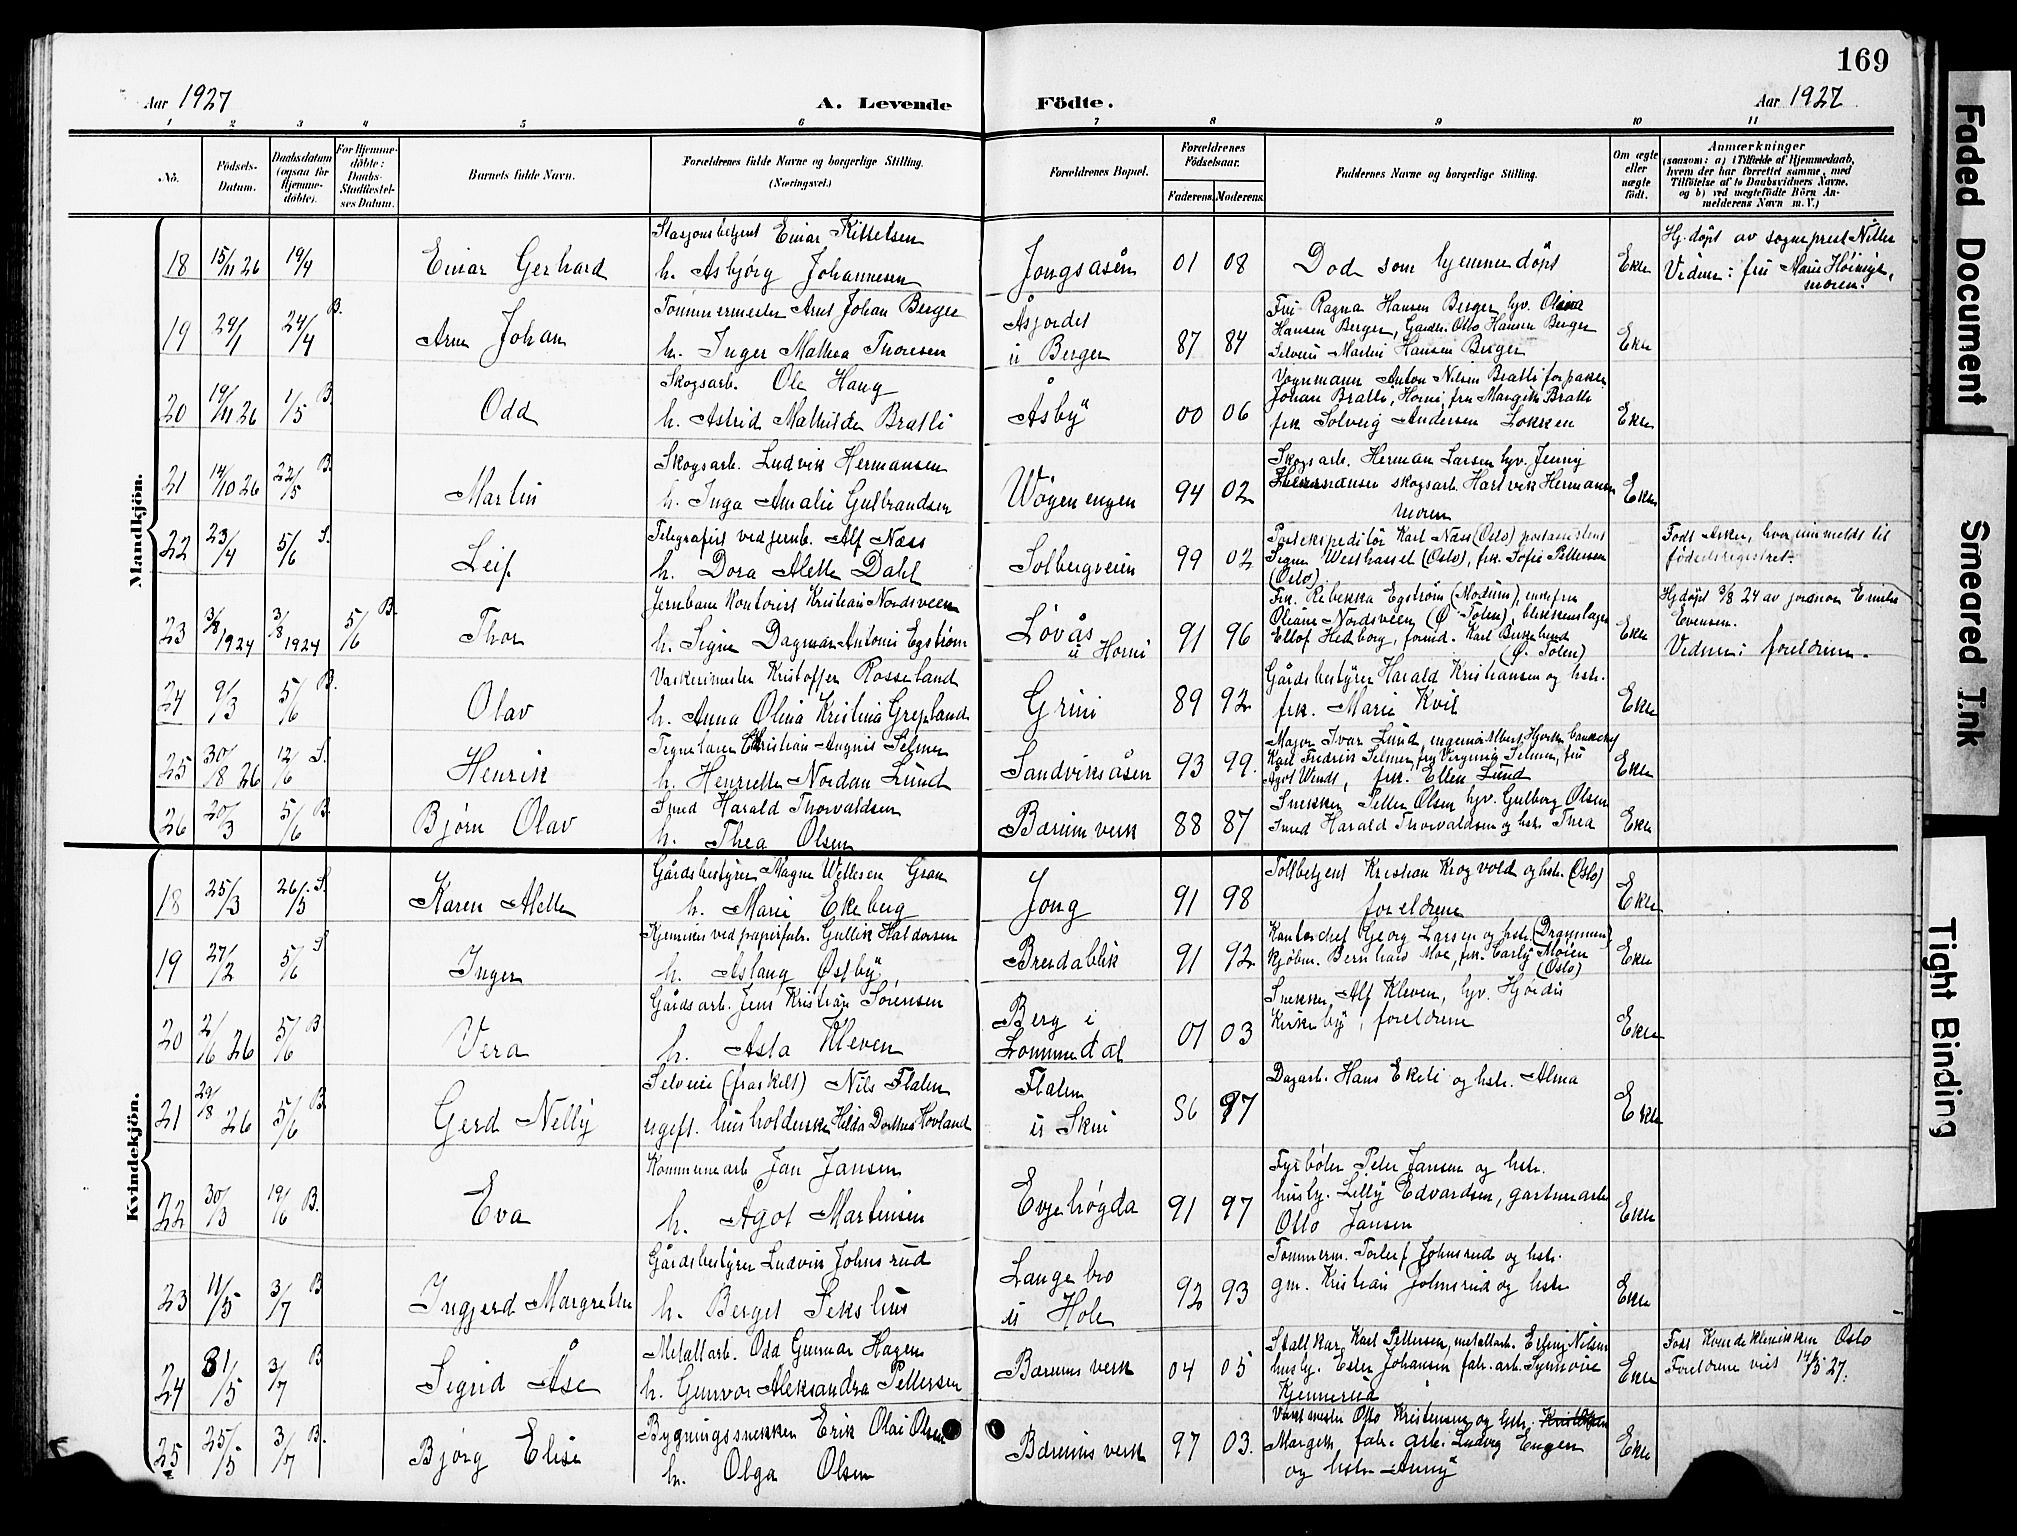 169
Aar 1927
A. Levende
Födte.
Aar 1927
1 2 3 4 5 6 7 8 9 10 11
No.
Födsels-
Datum.
Daabsdatum
(ogsaa for
Hjemme-
döbte).
For Hjemme-
döbte:
Daabs-
Stadfæstel-
ses Datum.
Barnets fulde Navn.
Forældrenes fulde Navne og borgerlige Stilling.
(Næringsvei.)
Forældrenes Bopæl.
Forældrenes
Födselsaar.
Faderens.
Moderens.
Faddernes Navne og borgerlige Stilling.
Om ægte
eller
uægte
födt.
Anmærkninger
(saasom: a) i Tilfælde af Hjemmedaab,
hvem der har forrettet samme, med
Tilföielse af to Daabsvidners Navne,
og b) ved uægtefödte Börn An-
melderens Navn m. V.)
Mandkjön.
18 15/11 26 19/4 Einar Gerhard
Stasjonsbetjent Einar Kittelsen
h. Asbjørg Johannesen
Jongsåsen 01 08 Død som hjemmedöpt Ekte
Hj.döpt av sogneprest
Vidner: fru Marie
moren.
19 29/1 24/4 B. Arne Johan
Tømmermester Arnt Johan Berger
h. Inger Mathea Thoresen
Åsjordet
u Berger 87 84
Fru Ragna Hansen Berger, hv.
Hansen Berger, Gardbr. Otto Hansen Berger
Selveier Martin Hansen Berger
Ekte
20 19/11 26 1/5 B. Odd
Skogsarb. Ole Haug
h. Astrid Mathilde Bratli
Åsby 00 06
Vognmann Anton Nilsen Bratli, forpakter
Johan Bratli, Horni, fru Margith Bratli
frk Solveig Andersen Løkken
Ekte
21 14/10 26 22/5 B. Martin
Skogsarb. Ludvik Hermansen
h. Inga Amalie Gulbrandsen
Wøyenengen 94 02
Skogsarb. Herman Larsen hv. Jenny
Hermansen skogsarb. Hartvik Hermansen
moren
Ekte
22 23/4 5/6 S. Leif
Telegrafist ved jernb. Alf Næss
h. Dora Alette Dahl
Solbergveien 99 02
Postekspeditør Karl Næss (Oslo) postassistent
Signe Westhassel (Oslo), frk. Sofie Pettersen
(Oslo)
Født Asker, hvor innmeldt til
fødselsregistret.
23 3/8 1924 3/8 1924 5/6 B. Thor
Jernbane kontorist Kristian Nordsveen
h. Signe Dagmar Antonie Egström
Løvås
u Horni 91 96
Frk. Rebekka Egström (Modum), enkefru
Oliane Nordsveen (Ø. Toten), blikkenslager
Ellof Hedborg, form.
(Ø. Toten)
Ekte
Hj.döpt 3/8 24 av jordmor Emilie
Evensen.
Vidner: foreldrene.
24 9/3 5/6 B. Olav
Vaskerimester Kristoffer Rosseland
h. Anna Olina Kristina Grepland
Grini 89 92
Gårdsbestyrer Harald Kristiansen og hstr.
frk. Marie Kvil
Ekte
25 30/8 26 12/6 S. Henrik
Tegnelærer Christian August Selmer
h. Henriette Nordan Lund
Sandviksåsen 93 99.
Major Ivar Lund, ingeniør Albert
Karl Fredrik Selmer, fru Virginia Selmer, fru
Ågot Wendt, frk. Ellen Lund
Ekte
26 20/3 5/6 B. Bjørn Olav
Smed Harald Thorvaldsen
h. Thea Olsen
Bærum verk 88 87
Snekker Petter Olsen hv. Gulborg Olsen
smed Harald Thorvaldsen og hstr Thea
Ekte
Kvindekjön.
18 25/3 26/5 S. Karen Alette
Gårdsbestyrer Magne Wettesen Gran
h. Marie Ekeberg
Jong 91 98
Tollbetjent Kristian Krogvold og hstr. (Oslo)
foreldrene
Ekte
19 27/2 5/6 S Inger
Kjemiker ved papirfabr. Gullik Haldorsen
h. Aslaug Østby
Breidablik 91 92
Kontorchef Georg Larsen og hstr. (Drammen)
kjøbm. Bernhard Moe, frk. Carly Moien
(Oslo)
Ekte
20 2/6 26 5/6 B. Vera
Gårdsarb. Jens Kristian Sørensen
h. Asta Kleven
Berg i
Lommedal 01 03
Snekker Alf Kleven, hv. Hjördis
Kirkeby, foreldrene
Ekte
21 29/8 26 5/6 B. Gerd Nelly
Selveier (fraskilt) Nils Flaten
ugift husholderske Hilda Dorthea Hovland
Flaten
u Skui 86 97
Dagarb. Hans Ekeli og hstr. Alma
Ekte
22 30/3 19/6 B. Eva
Kommunearb Jan Jansen
h. Ågot Martinsen
Evjehøgda 91 97
Fyrbøter Peter Jansen og hstr.
husby. Lilly Edvardsen, gartnerarb
Otto Jansen
Ekte
23 11/5 3/7 B Ingjerd Margrethe
Gårdsbestyrer Ludvik Johnsrud
h. Berget Sekshus
Langebro
u Hole 92 93
Tømmerm. Torleif Johnsrud og hstr.
gm. Kristian Johnsrud og hstr
Ekte
24 31/5 3/7 B Sigrid Åse
Metallarb. Odd Gunnar Hagen
h. Gunvor Aleksandra Pettersen
Bærums verk 04 05
Stallkar Karl Pettersen, metallarb. Erling Nilsen
husby. Ester Johansen fabr. arb. Synnøve
Kjennerud
Ekte
Født Kvindeklinikken Oslo
Foreldrene viet 14/5 27.
25 25/5 3/7 B. Bjørg Elise
Bygningssnekker Erik Olai Olsen
h. Olga Olsen
Bærums verk 97 03.
Otto Kristensen og hstr.
Margith, fabr. arb. Ludvig Engen
og hstr Anny
Ekte
Faded Document
Smeared Ink
Tight Binding